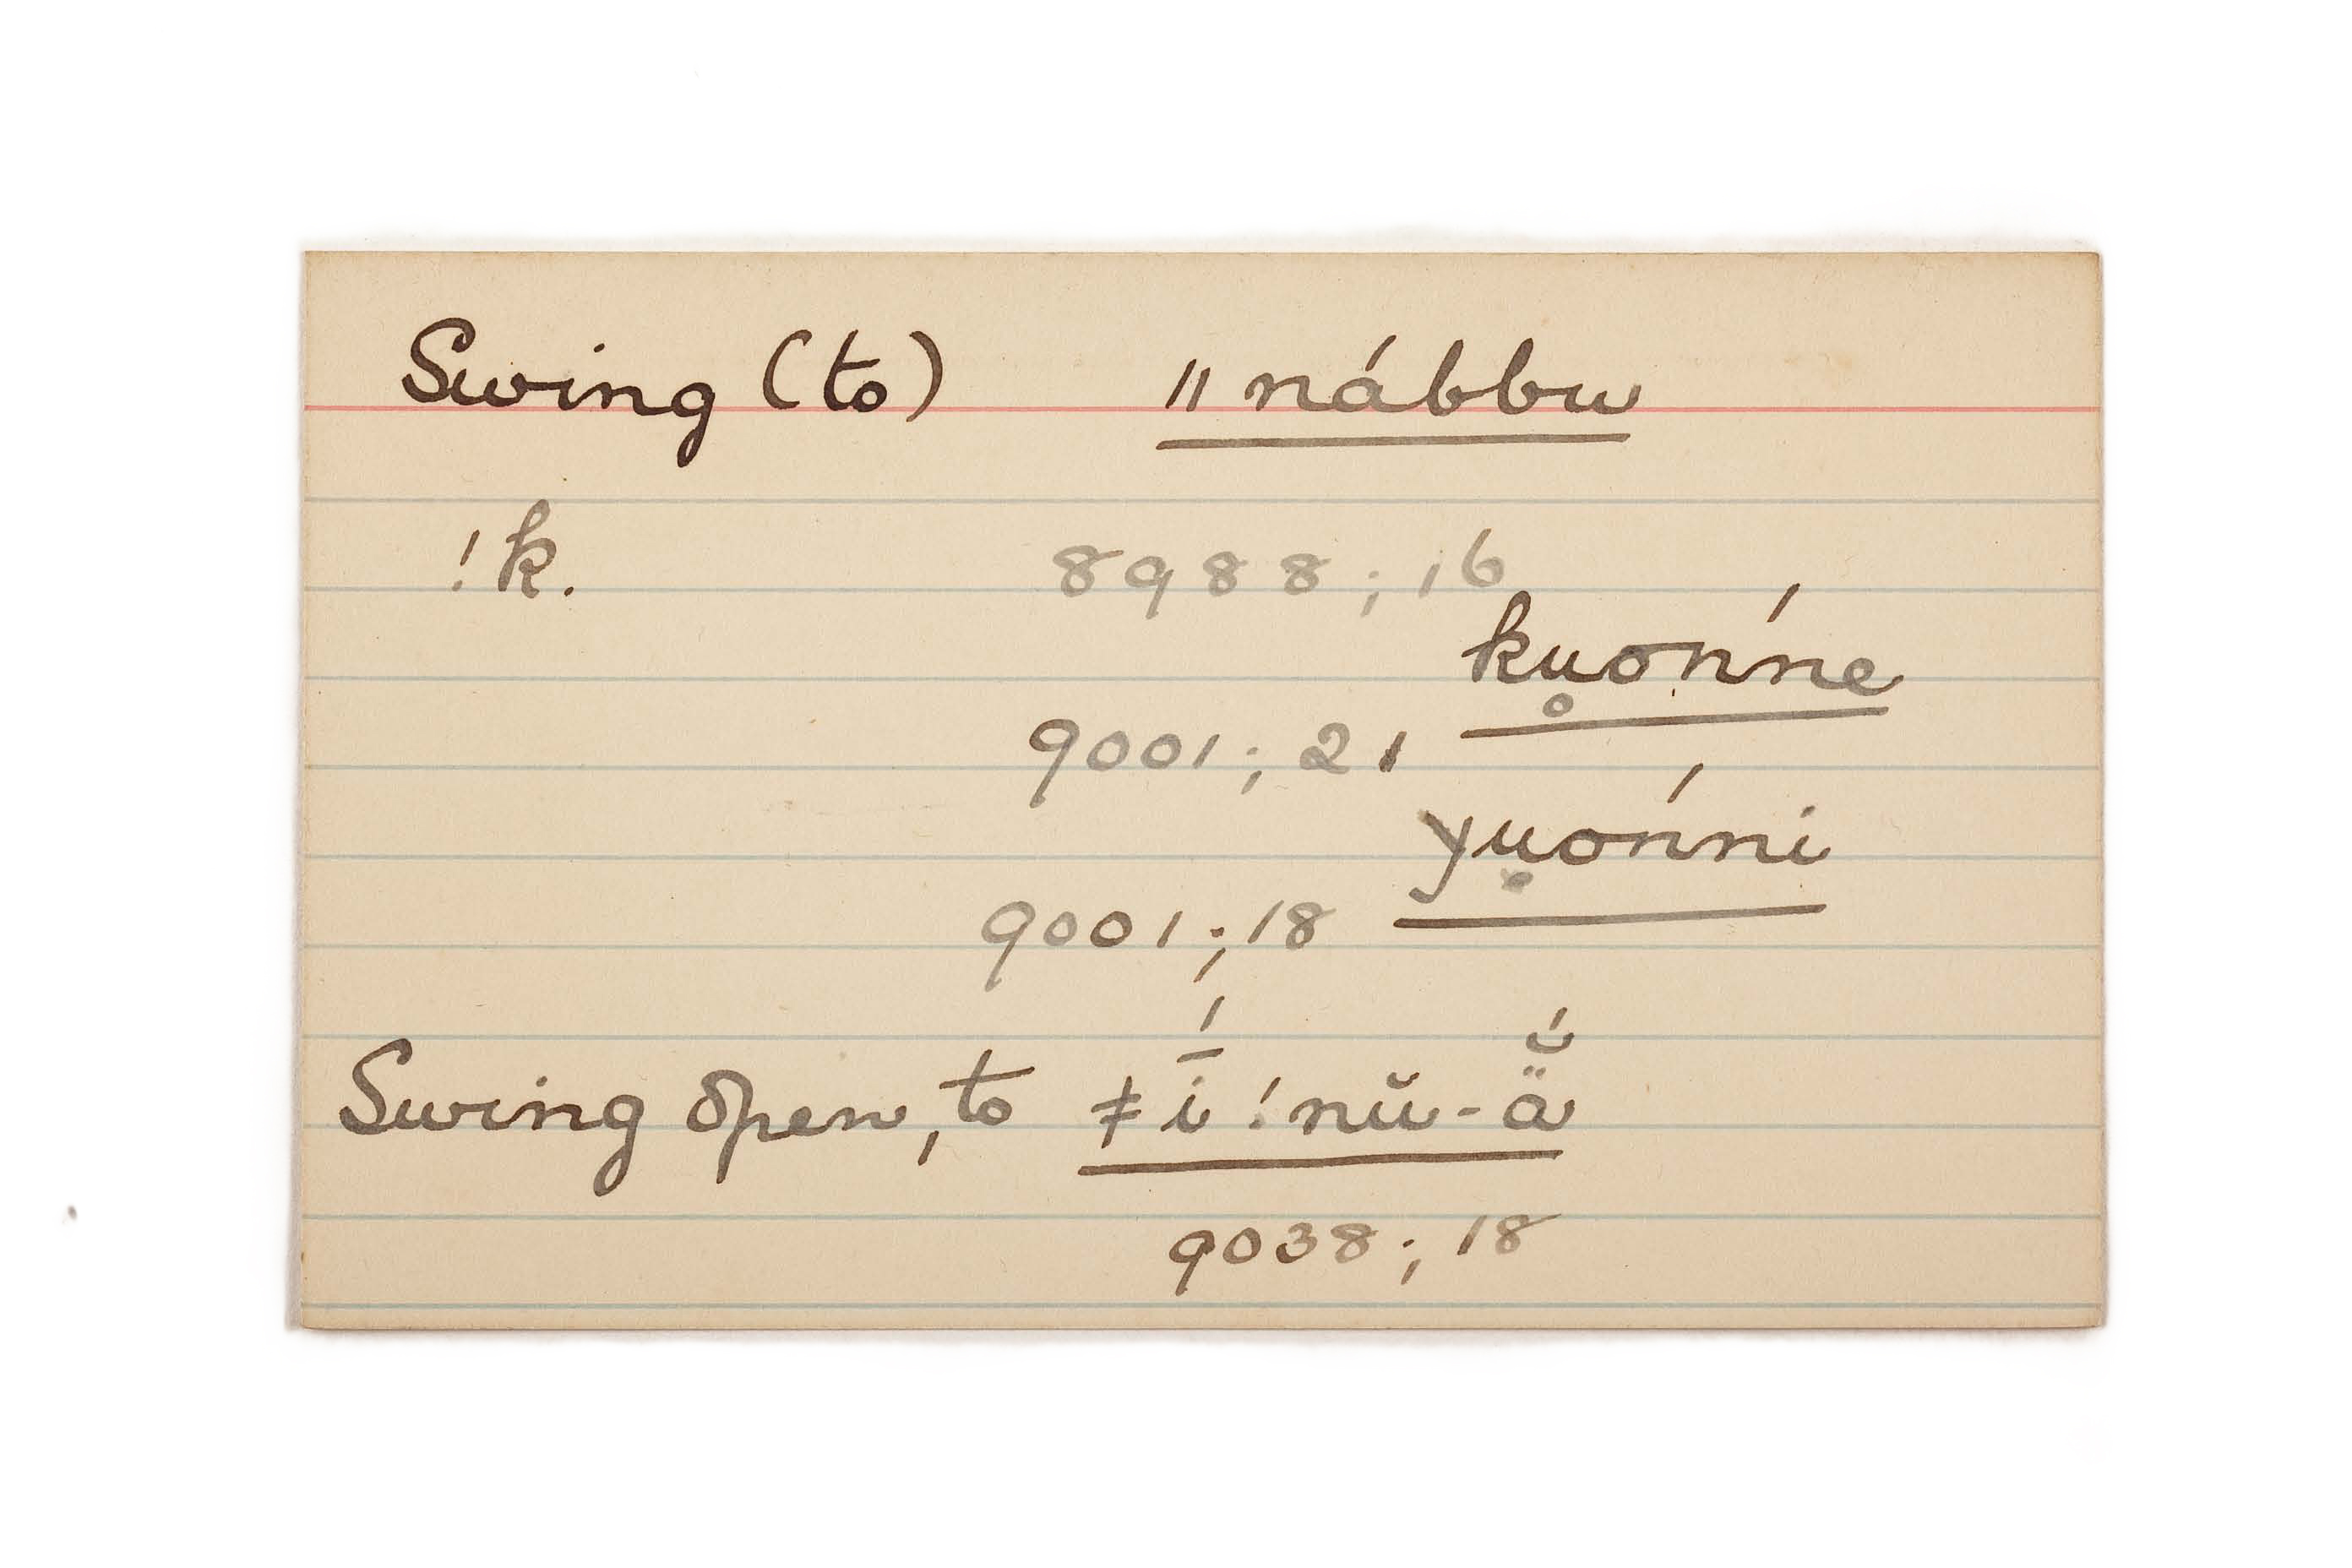 Swing (to) ǁnábbu
!k. 8988; 16
ku̥ónne
9001; 21
yu̥ónni
9001; 18
Swing open, to ǂī́ !nŭ-ä̆́
9038; 18